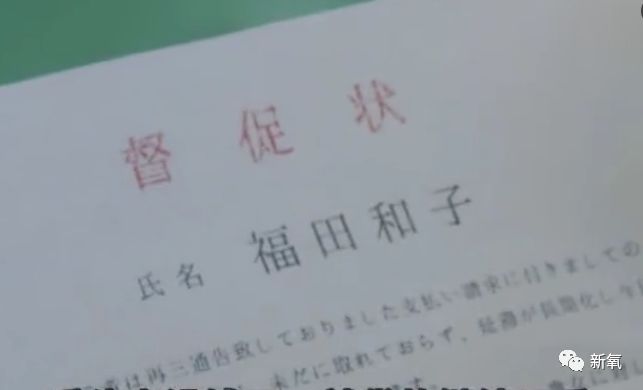 督促状
氏名 福田和子
は再三通告致しておりました支払い請求に付きましての
未だに取れておらず、延滞が長期化し今
新氧